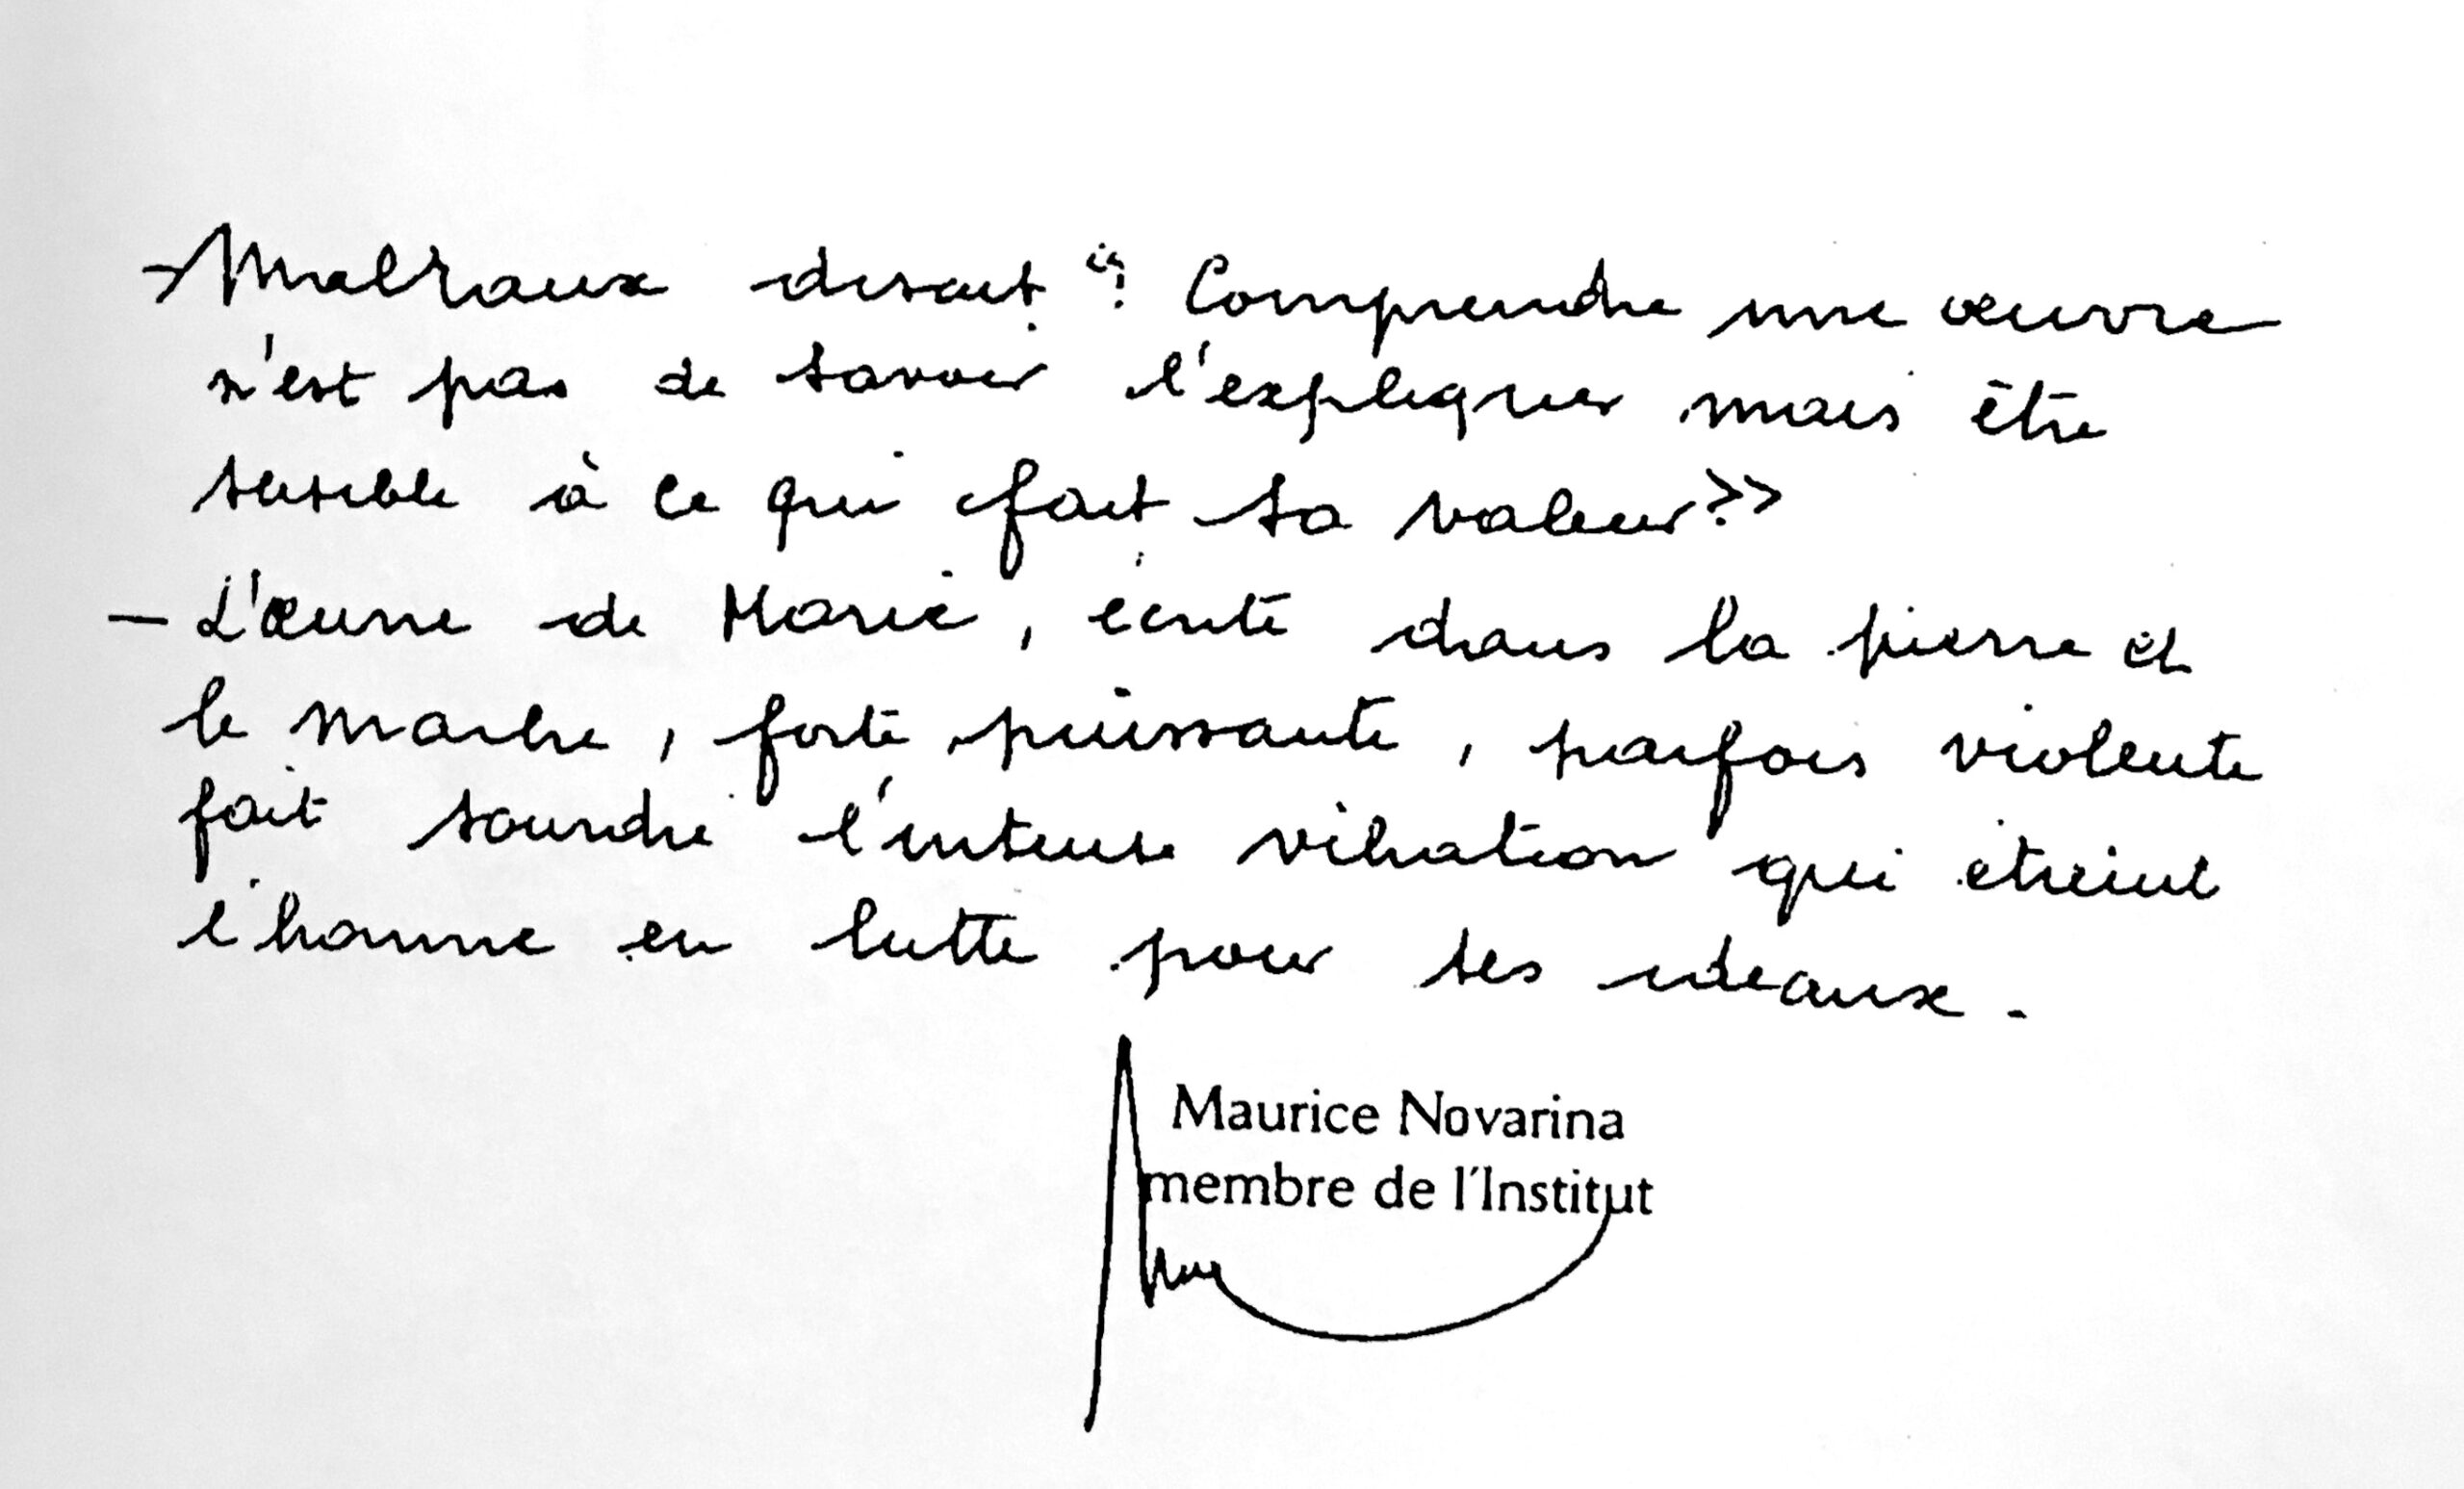 - Malraux disait " : Comprendre une œuvre
n'est pas de savoir l'expliquer mais être
sensible à ce qui fait sa valeur >>
- L'œuvre de Marie, écrite dans la pierre et
le marbre, forte, puissante, parfois violente
fait sourdre l'intense vibration qui étreint
l'homme en lutte pour ses idéaux.
Maurice Novarina
membre de l'Institut